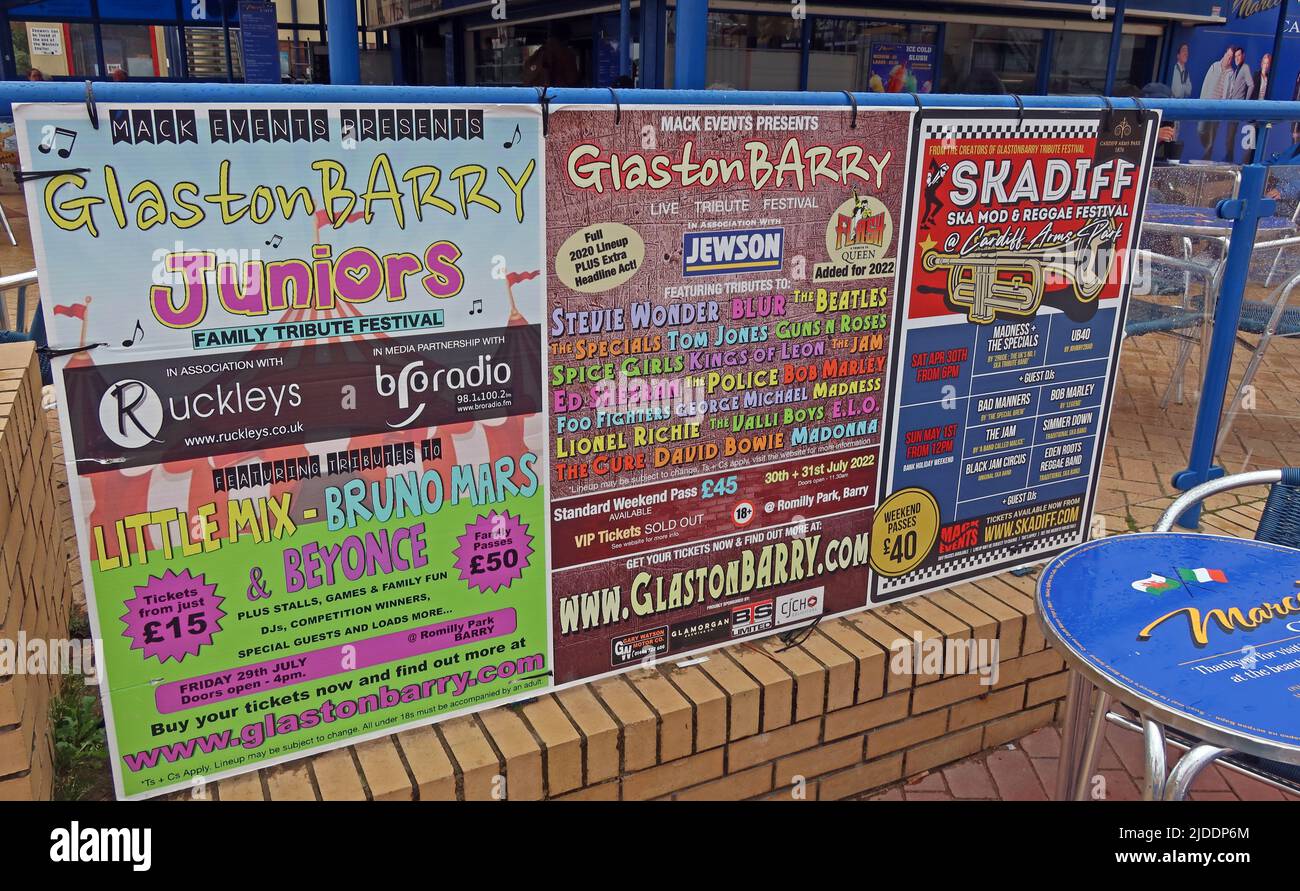 MACK EVENTS PRESENTS
GlastonBARRY
in
Juniors
FAMILY TRIBUTE FESTIVAL
IN ASSOCIATION WITH
Ruckleys
www.ruckleys.co.uk
IN MEDIA PARTNERSHIP WITH
bro radio
98.1 & 100.2fm
www.broradio.fm
FEATURING TRIBUTES TO
LITTLE MIX - BRUNO MARS
& BEYONCE
Family Passes £50
Tickets from just £15
PLUS STALLS, GAMES & FAMILY FUN
DJs, COMPETITION WINNERS,
SPECIAL GUESTS AND LOADS MORE...
@ Romilly Park
BARRY
FRIDAY 29th JULY
Doors open - 4pm.
Buy your tickets now and find out more at
www.glastonbarry.com
Lineup may be subject to change. All under 18s must be accompanied by an adult.
*Ts + Cs Apply
MACK EVENTS PRESENTS
GlastonBARRY
LIVE TRIBUTE FESTIVAL
In Association With
JEWSON
Full
2020 Lineup
PLUS Extra
Headline Act!
FLASH
A TRIBUTE TO
QUEEN
Added for 2022
FEATURING TRIBUTES TO:
STEVIE WONDER BLUR THE BEATLES
THE SPECIALS TOM JONES GUNS N ROSES
SPICE GIRLS KINGS OF LEON THE JAM
ED SHEERAN THE POLICE BOB MARLEY
FOO FIGHTERS GEORGE MICHAEL MADNESS
LIONEL RICHIE THE VALLI BOYS E.L.O.
THE CURE DAVID BOWIE MADONNA
*Lineup may be subject to change, Ts + Cs apply. Visit the website for more information
Standard Weekend Pass £45
AVAILABLE
30th + 31st July 2022
Doors open - 11.30am
VIP Tickets SOLD OUT
See website for more info
18+
@ Romilly Park, Barry
GET YOUR TICKETS NOW & FIND OUT MORE AT:
WWW.GLASTONBARRY.COM
PROUDLY SPONSORED BY:
GW
GARY WATSON
MOTOR CO.
GLAMORGAN
BREWING CO
BS
LIMITED
CJCH
CARDIFF ARMS PARK
1876
FROM THE CREATORS OF GLASTONBARRY TRIBUTE FESTIVAL
SKADIFF
SKA MOD & REGGAE FESTIVAL
@ Cardiff Arms Park
SAT APR 30TH
FROM 6PM
MADNESS +
THE SPECIALS
BY '2RUDE' - THE UK'S NO.1
SKA TRIBUTE BAND
UB40
BY JOHNNY2BAD
+ GUEST DJs
SUN MAY 1ST
FROM 12PM
BANK HOLIDAY WEEKEND
BAD MANNERS
BY 'THE SPECIAL BREW'
BOB MARLEY
BY 'LEGEND'
THE JAM
BY 'A BAND CALLED MALICE'
SIMMER DOWN
TRADITIONAL SKA BAND
BLACK JAM CIRCUS
ORIGINAL SKA BAND
EDEN ROOTS
REGGAE BAND
+ GUEST DJs
WEEKEND
PASSES
£40
MACK
EVENTS
TICKETS AVAILABLE FROM
WWW.SKADIFF.COM
ICE COLD
SLUSH
Thank you for
at the
alamy
Image ID: 2JDDP6M
www.alamy.com